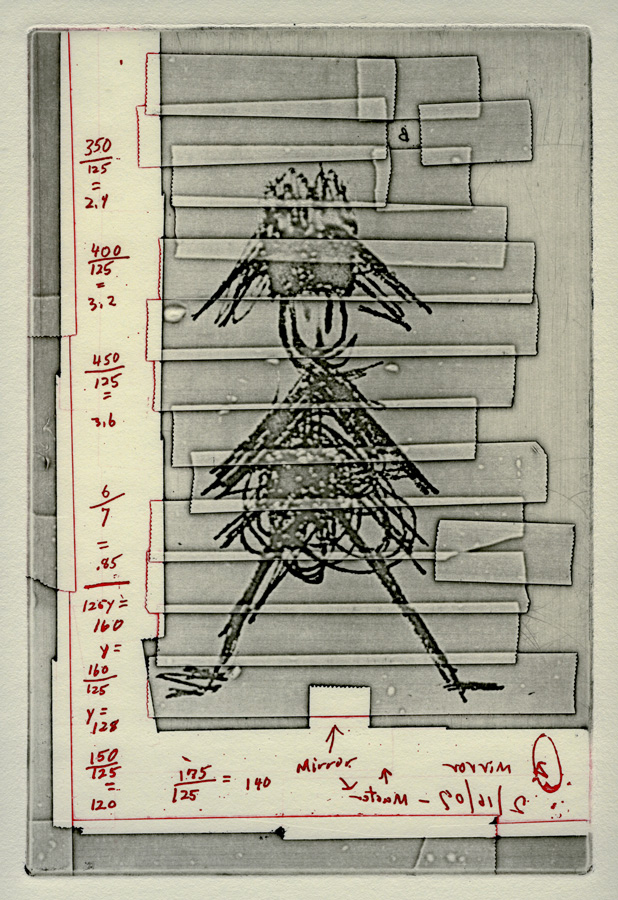 350
125
=
2.9
400
125
=
3.2
450
125
=
3.6
6
7
=
.85
125Y =
160
y =
160
125
y =
128
150
125
=
120
175
125
= 140
Mirror
mirror
2/16/03
B